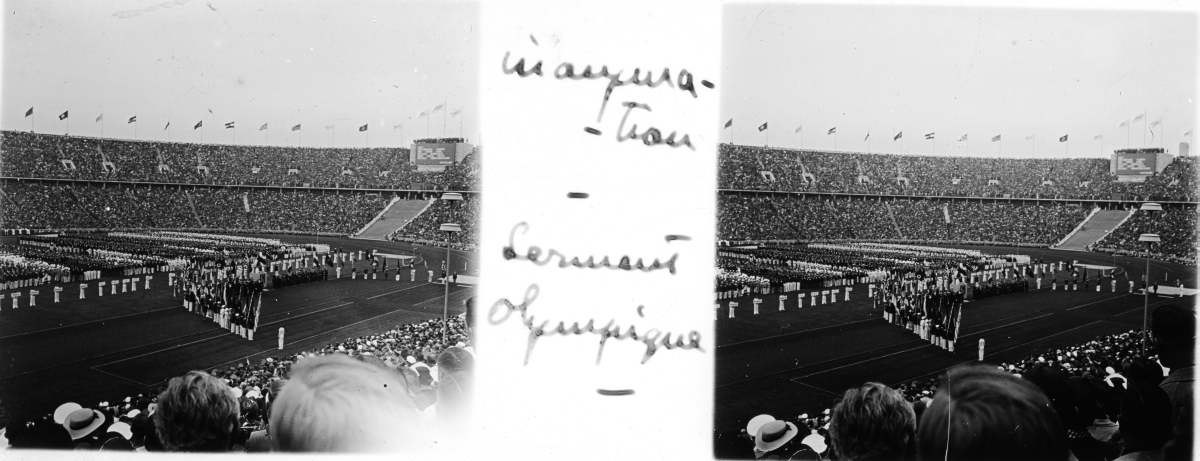 inaugura-
-tion
-
Serment
Olympique
-